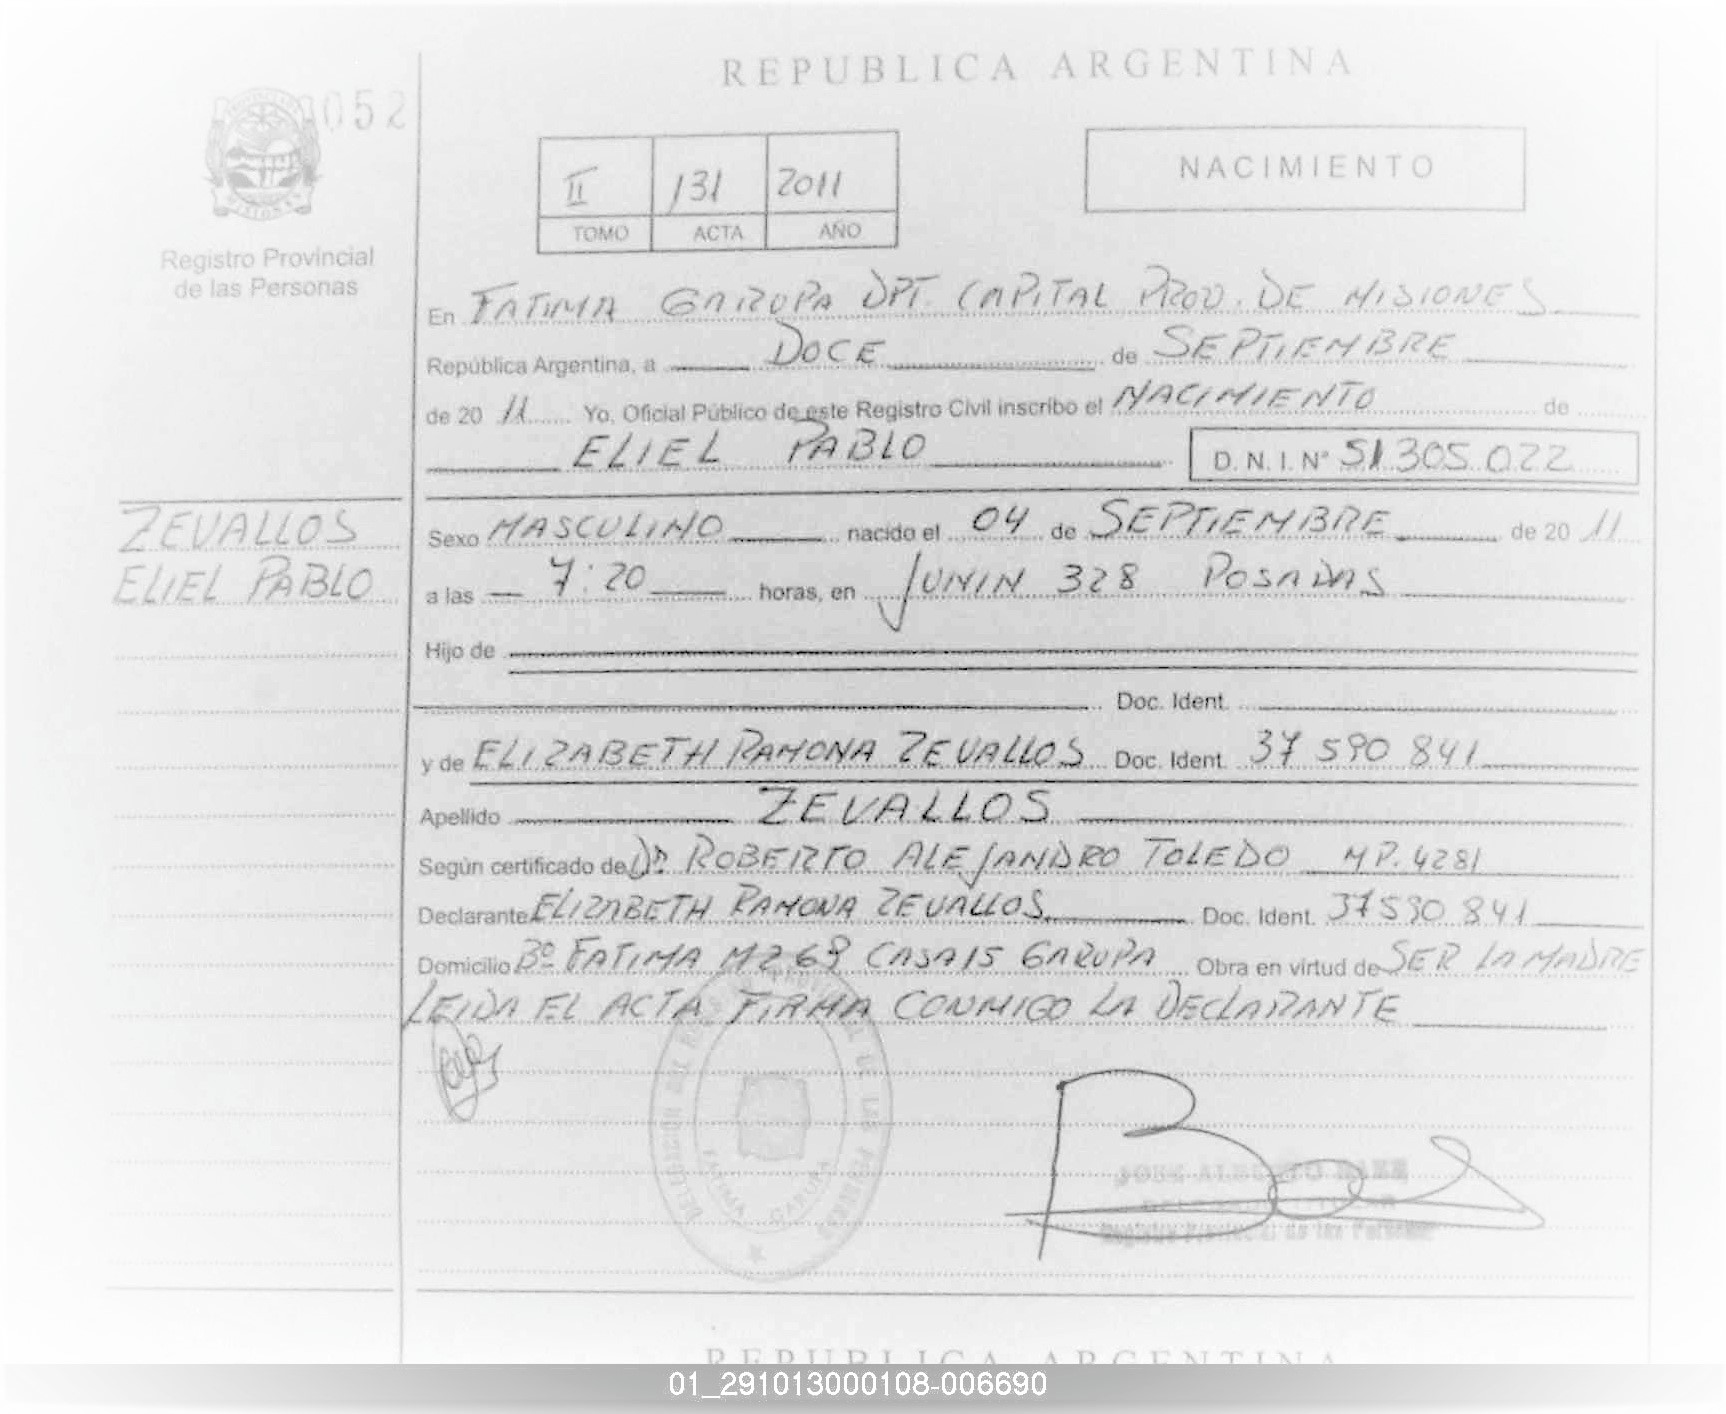 REPUBLICA ARGENTINA
052
NACIMIENTO
II 131 2011
TOMO ACTA AÑO
Registro Provincial
de las Personas
En FATIMA GARUPA DPT. CAPITAL PROV. DE MISIONES
República Argentina, a DOCE de SEPTIEMBRE
de 20 11 Yo, Oficial Público de este Registro Civil inscribo el NACIMIENTO de
ELIEL PABLO D. N. I. N° 51 305.022
ZEVALLOS
ELIEL PABLO
Sexo MASCULINO nacido el 04 de SEPTIEMBRE de 20 11
a las 7:20 horas, en JUNIN 328 POSADAS
Hijo de
Doc. Ident.
y de ELIZABETH RAMONA ZEVALLOS Doc. Ident. 37 590 841
Apellido ZEVALLOS
Según certificado de Dr ROBERTO ALEJANDRO TOLEDO MP. 4281
Declarante ELIZABETH RAMONA ZEVALLOS Doc. Ident. 37590 841
Domicilio Bº FATIMA MZ 69 CASA 15 GARUPA Obra en virtud de SER LA MADRE
LEIDA EL ACTA FIRMA CONMIGO LA DECLARANTE
DELEGACION DE LAS PERSONAS
FATIMA GARUPA
JOSE ALBERTO
Registro Provincial de las Personas
REPUBLICA ARGENTINA
01_291013000108-006690